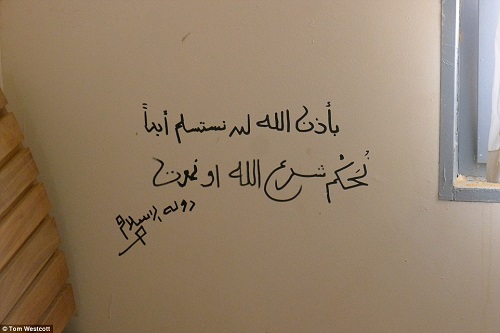 بأذن الله لن نستسلم أبداً
نُحَكْم شرع الله او نموت
دوله الإسلام
© Tom Westcott